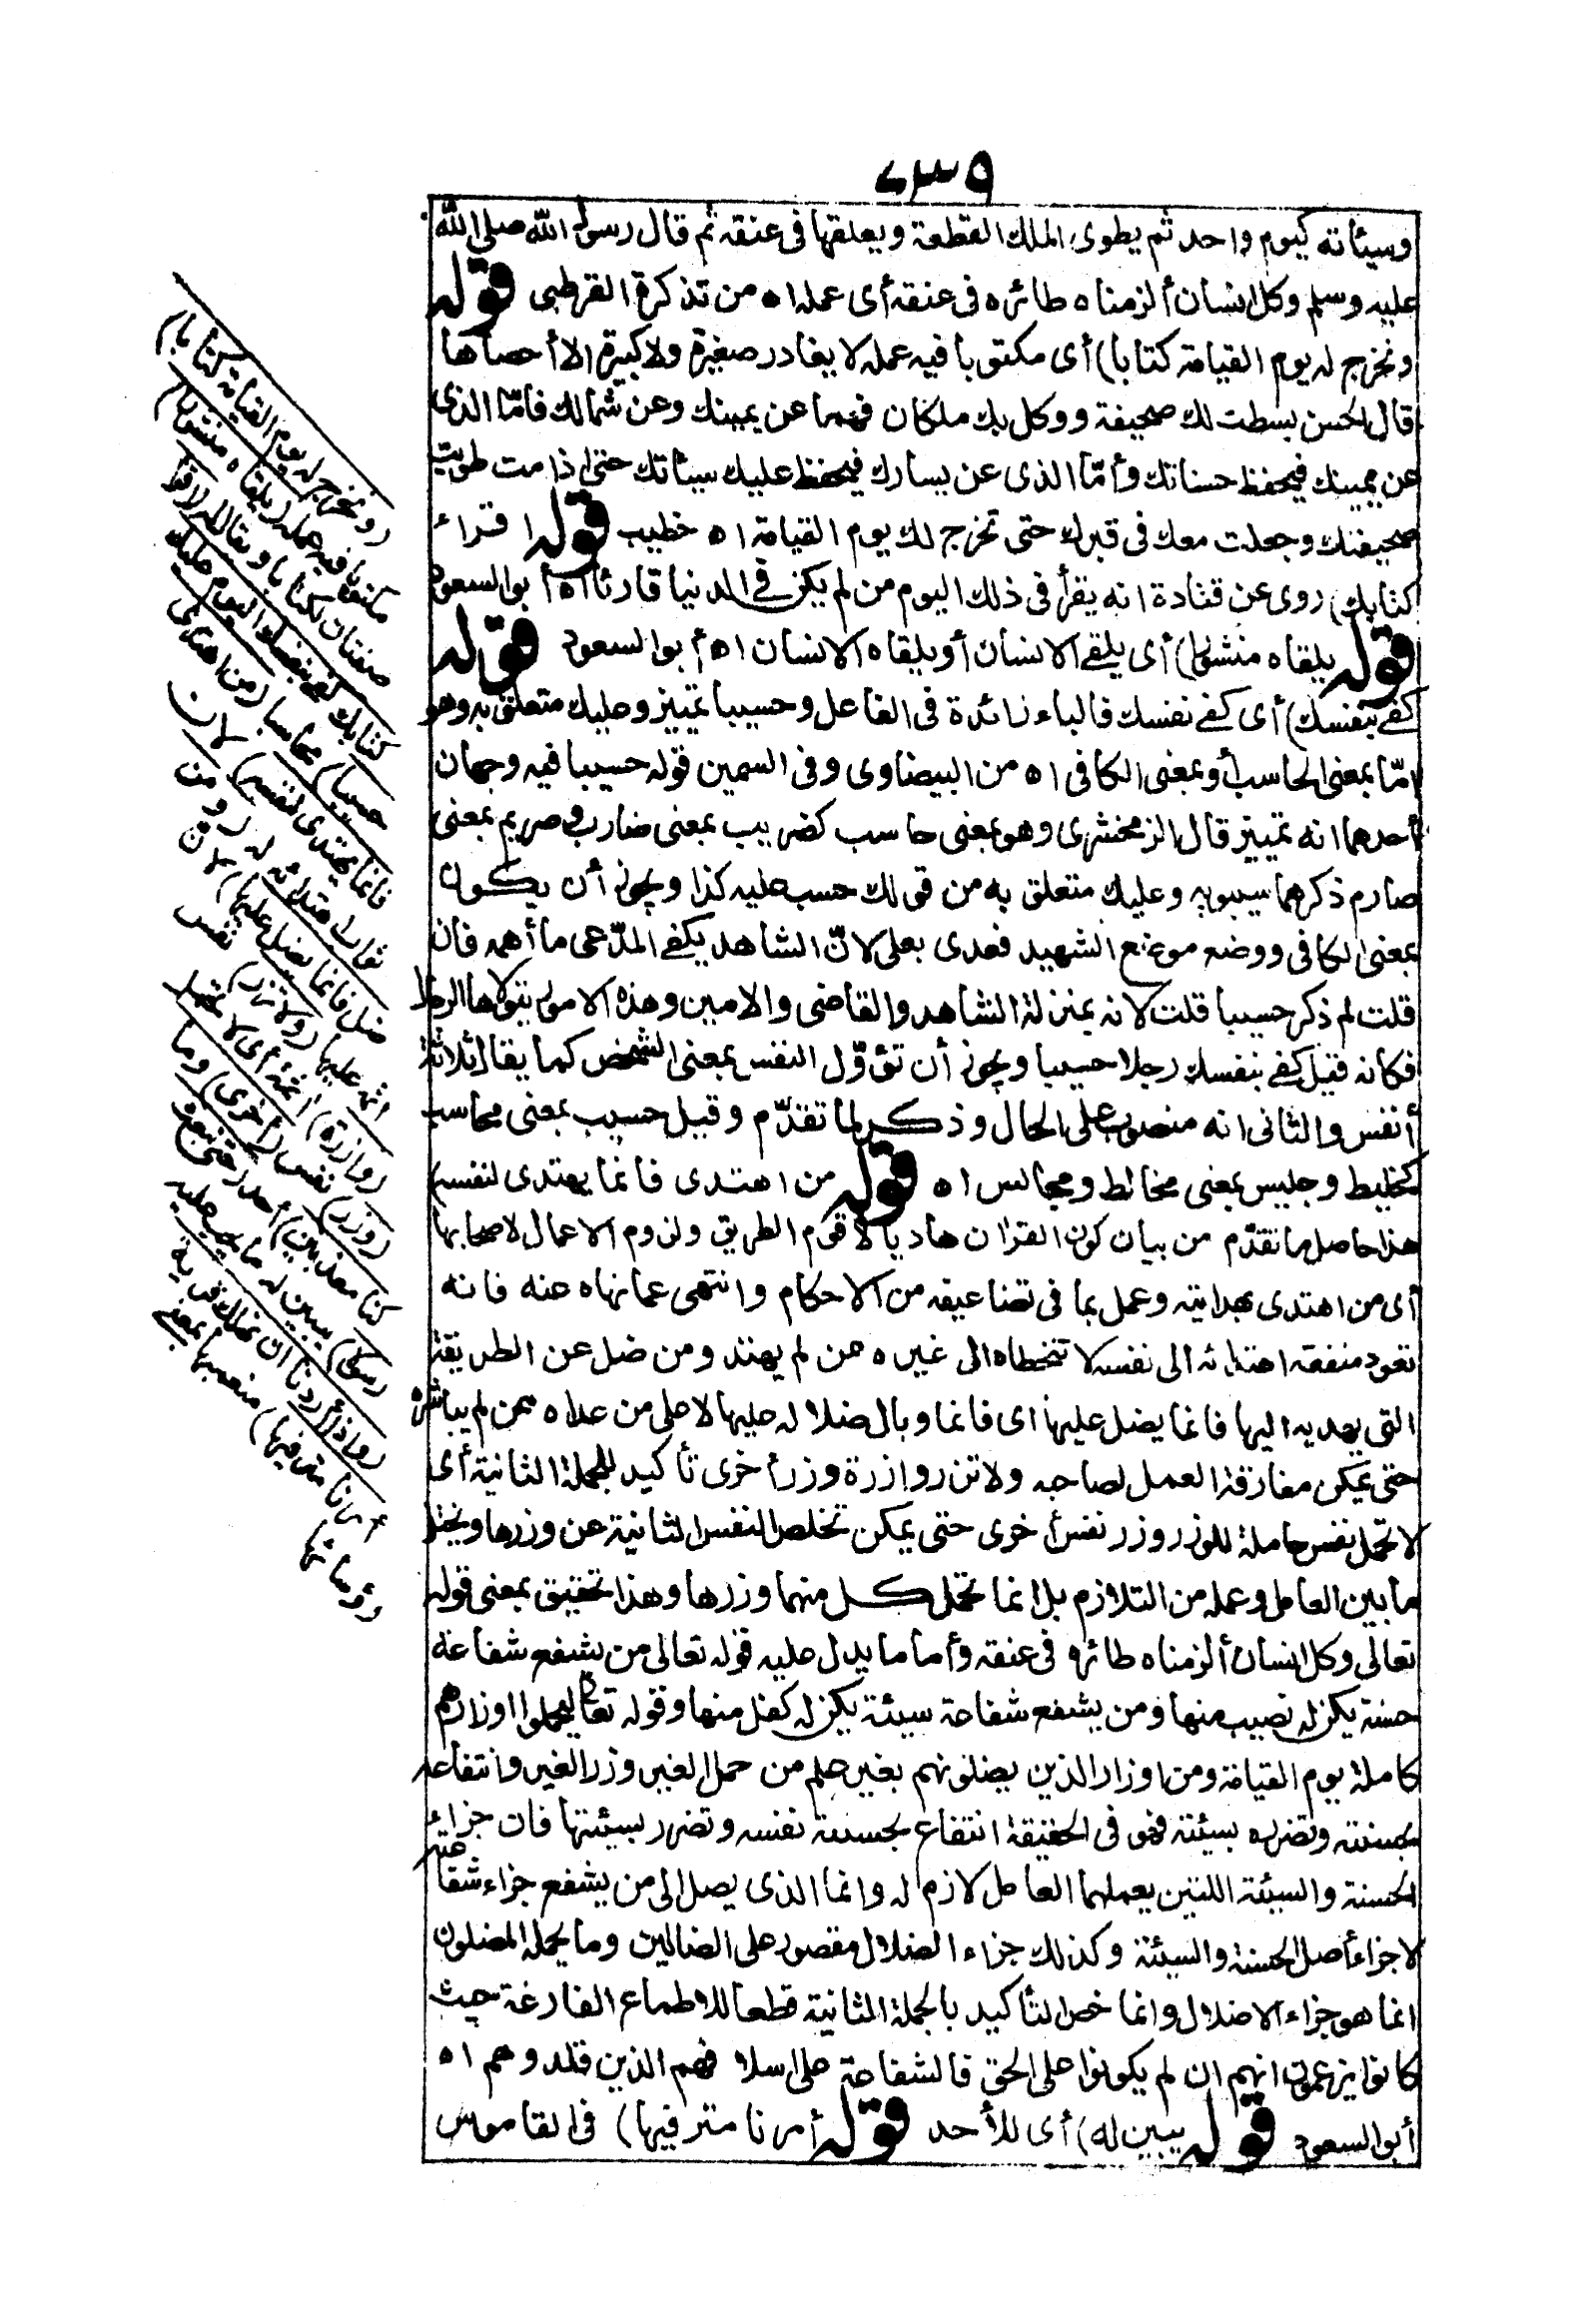 ٢٣٩
وسيئاته كيوم واحد ثم يطوى الملك القطعة ويعلقها فى عنقه ثم قال رسول الله صلى الله
عليه وسلم وكل انسان ألزمناه طائره فى عنقه أى عمله اه من تذكرة القرطبى قوله
ونخرج له يوم القيامة كتابا) أى مكتوبا فيه عمله لا يغادر صغيرة ولا كبيرة الا أحصاها
قال الحسن بسطت لك صحيفة ووكل بك ملكان فهما عن يمينك وعن شمالك فامّا الذى
عن يمينك فيحفظ حسناتك وأمّا الذى عن يسارك فيحفظ عليك سيئاتك حتى اذا مت طويت
صحيفتك وجعلت معك فى قبرك حتى تخرج لك يوم القيامة اه خطيب قوله اقراء
كتابك) روى عن قتادة انه يقرأ فى ذلك اليوم من لم يكن فى الدنيا قارئا اه أبو السعود
قوله يلقاه منشورا) أى يلقى الانسان أو يلقاه الانسان اه أبو السعود قوله
كفى بنفسك) أى كفى نفسك فالباء زائدة فى الفاعل وحسيبا تمييز وعليك متعلق به وهو
امّا بمعنى الحاسب أو بمعنى الكافى اه من البيضاوى وفى السمين قوله حسيبا فيه وجهان
أحدهما انه تمييز قال الزمخشرى وهو بمعنى حاسب كضريب بمعنى ضارب وصريم بمعنى
صارم ذكرهما سيبويه وعليك متعلق به من قولك حسب عليه كذا ويجوز أن يكون
بمعنى الكافى ووضع موضع الشهيد فعدى بعلى لانّ الشاهد يكفى المدّعى ما أهمه فان
قلت لم ذكر حسيبا قلت لانه بمنزلة الشاهد والقاضى والامين وهذه الامور يتولاها الرجال
فكانه قيل كفى بنفسك رجلا حسيبا ويجوز أن تؤوّل النفس بمعنى الشخص كما يقال ثلاثة
أنفس والثانى انه منصوب على الحال وذكر لما تقدّم وقيل حسيب بمعنى محاسب
كخليط وجليس بمعنى مخالط ومجالس اه قوله من اهتدى فانما يهتدى لنفسه)
هذا حاصل ما تقدّم من بيان كون القران هاديا لاقوم الطريق ولزوم الاعمال لاصحابها
أى من اهتدى بهدايته وعمل بما فى تضاعيفه من الاحكام وانتهى عما نهاه عنه فانه
تعود منفعة اهتدائه الى نفسه لا تتخطاه الى غيره ممن لم يهتد ومن ضل عن الطريقة
التى يهديه اليها فانما يضل عليها اى فانما وبال ضلاله عليها لا على من عداه ممن لم يباشره
حتى يمكن مفارقة العمل لصاحبه ولا تزر وازرة وزر أخرى تأكيد للجملة الثانية أى
لا تحمل نفس حاملة للوزر وزر نفس أخرى حتى يمكن تخلص النفس الثانية عن وزرها ويختل
ما بين العامل وعمله من التلازم بل انما تحمل كل منهما وزرها وهذا تحقيق بمعنى قوله
تعالى وكل انسان ألزمناه طائره فى عنقه وأما ما يدل عليه قوله تعالى من يشفع شفاعة
حسنة يكن له نصيب منها ومن يشفع شفاعة سيئة يكن له كفل منها وقوله تعالى ليحملوا اوزارهم
كاملة يوم القيامة ومن اوزار الذين يضلونهم بغير علم من حمل الغير وزر الغير وانتفاعه
بحسنته وتضرره بسيئته فهو فى الحقيقة انتفاع بحسنة نفسه وتضرر بسيئتها فان جزاء
الحسنة والسيئة اللتين يعملهما العامل لازم له وانما الذى يصل الى من يشفع جزاء شفاعته
لا جزاء أصل الحسنة والسيئة وكذلك جزاء الضلال مقصور على الضالين وما يحمله المضلون
انما هو جزاء الاضلال وانما خص التأكيد بالجملة الثانية قطعا للاطماع الفارغة حيث
كانوا يزعمون انهم ان لم يكونوا على الحق فالشفاعة على اسلافهم الذين قلدوهم اه
أبو السعود قوله يبين له) أى للأحد قوله أمرنا مترفيها) فى القاموس
(ونخرج له يوم القيامة كتابا)
مكتوبا فيه عمله (يلقاه منشورا)
صفتان لكتابا ويقال له (اقرأ
كتابك كفى بنفسك اليوم عليك
حسيبا) محاسبا (من اهتدى
فانما يهتدى لنفسه) لان
ثواب اهتدائه له (ومن
ضل فانما يضل عليها) لان
اثمه عليها (ولا تزر) نفس
(وازرة) آثمة أى لا تحمل
(وزر) نفس (أخرى) وما
كنا معذبين) أحدا (حتى نبعث
رسولا) يبين له ما يجب عليه
(واذا أردنا أن نهلك قرية
أمرنا مترفيها) منعميها بمعنى
رؤسائها